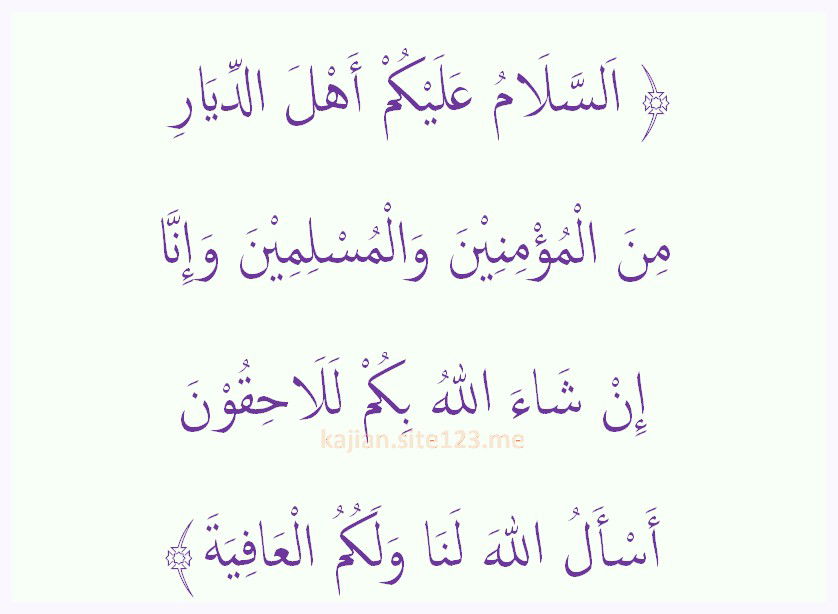 ﴿ اَلسَّلَامُ عَلَيْكُمْ أَهْلَ الدِّيَارِ
مِنَ الْمُؤْمِنِيْنَ وَالْمُسْلِمِيْنَ وَإِنَّا
إِنْ شَاءَ اللهُ بِكُمْ لَلَاحِقُوْنَ
kajian.site123.me
أَسْأَلُ اللهَ لَنَا وَلَكُمُ الْعَافِيَةَ ﴾